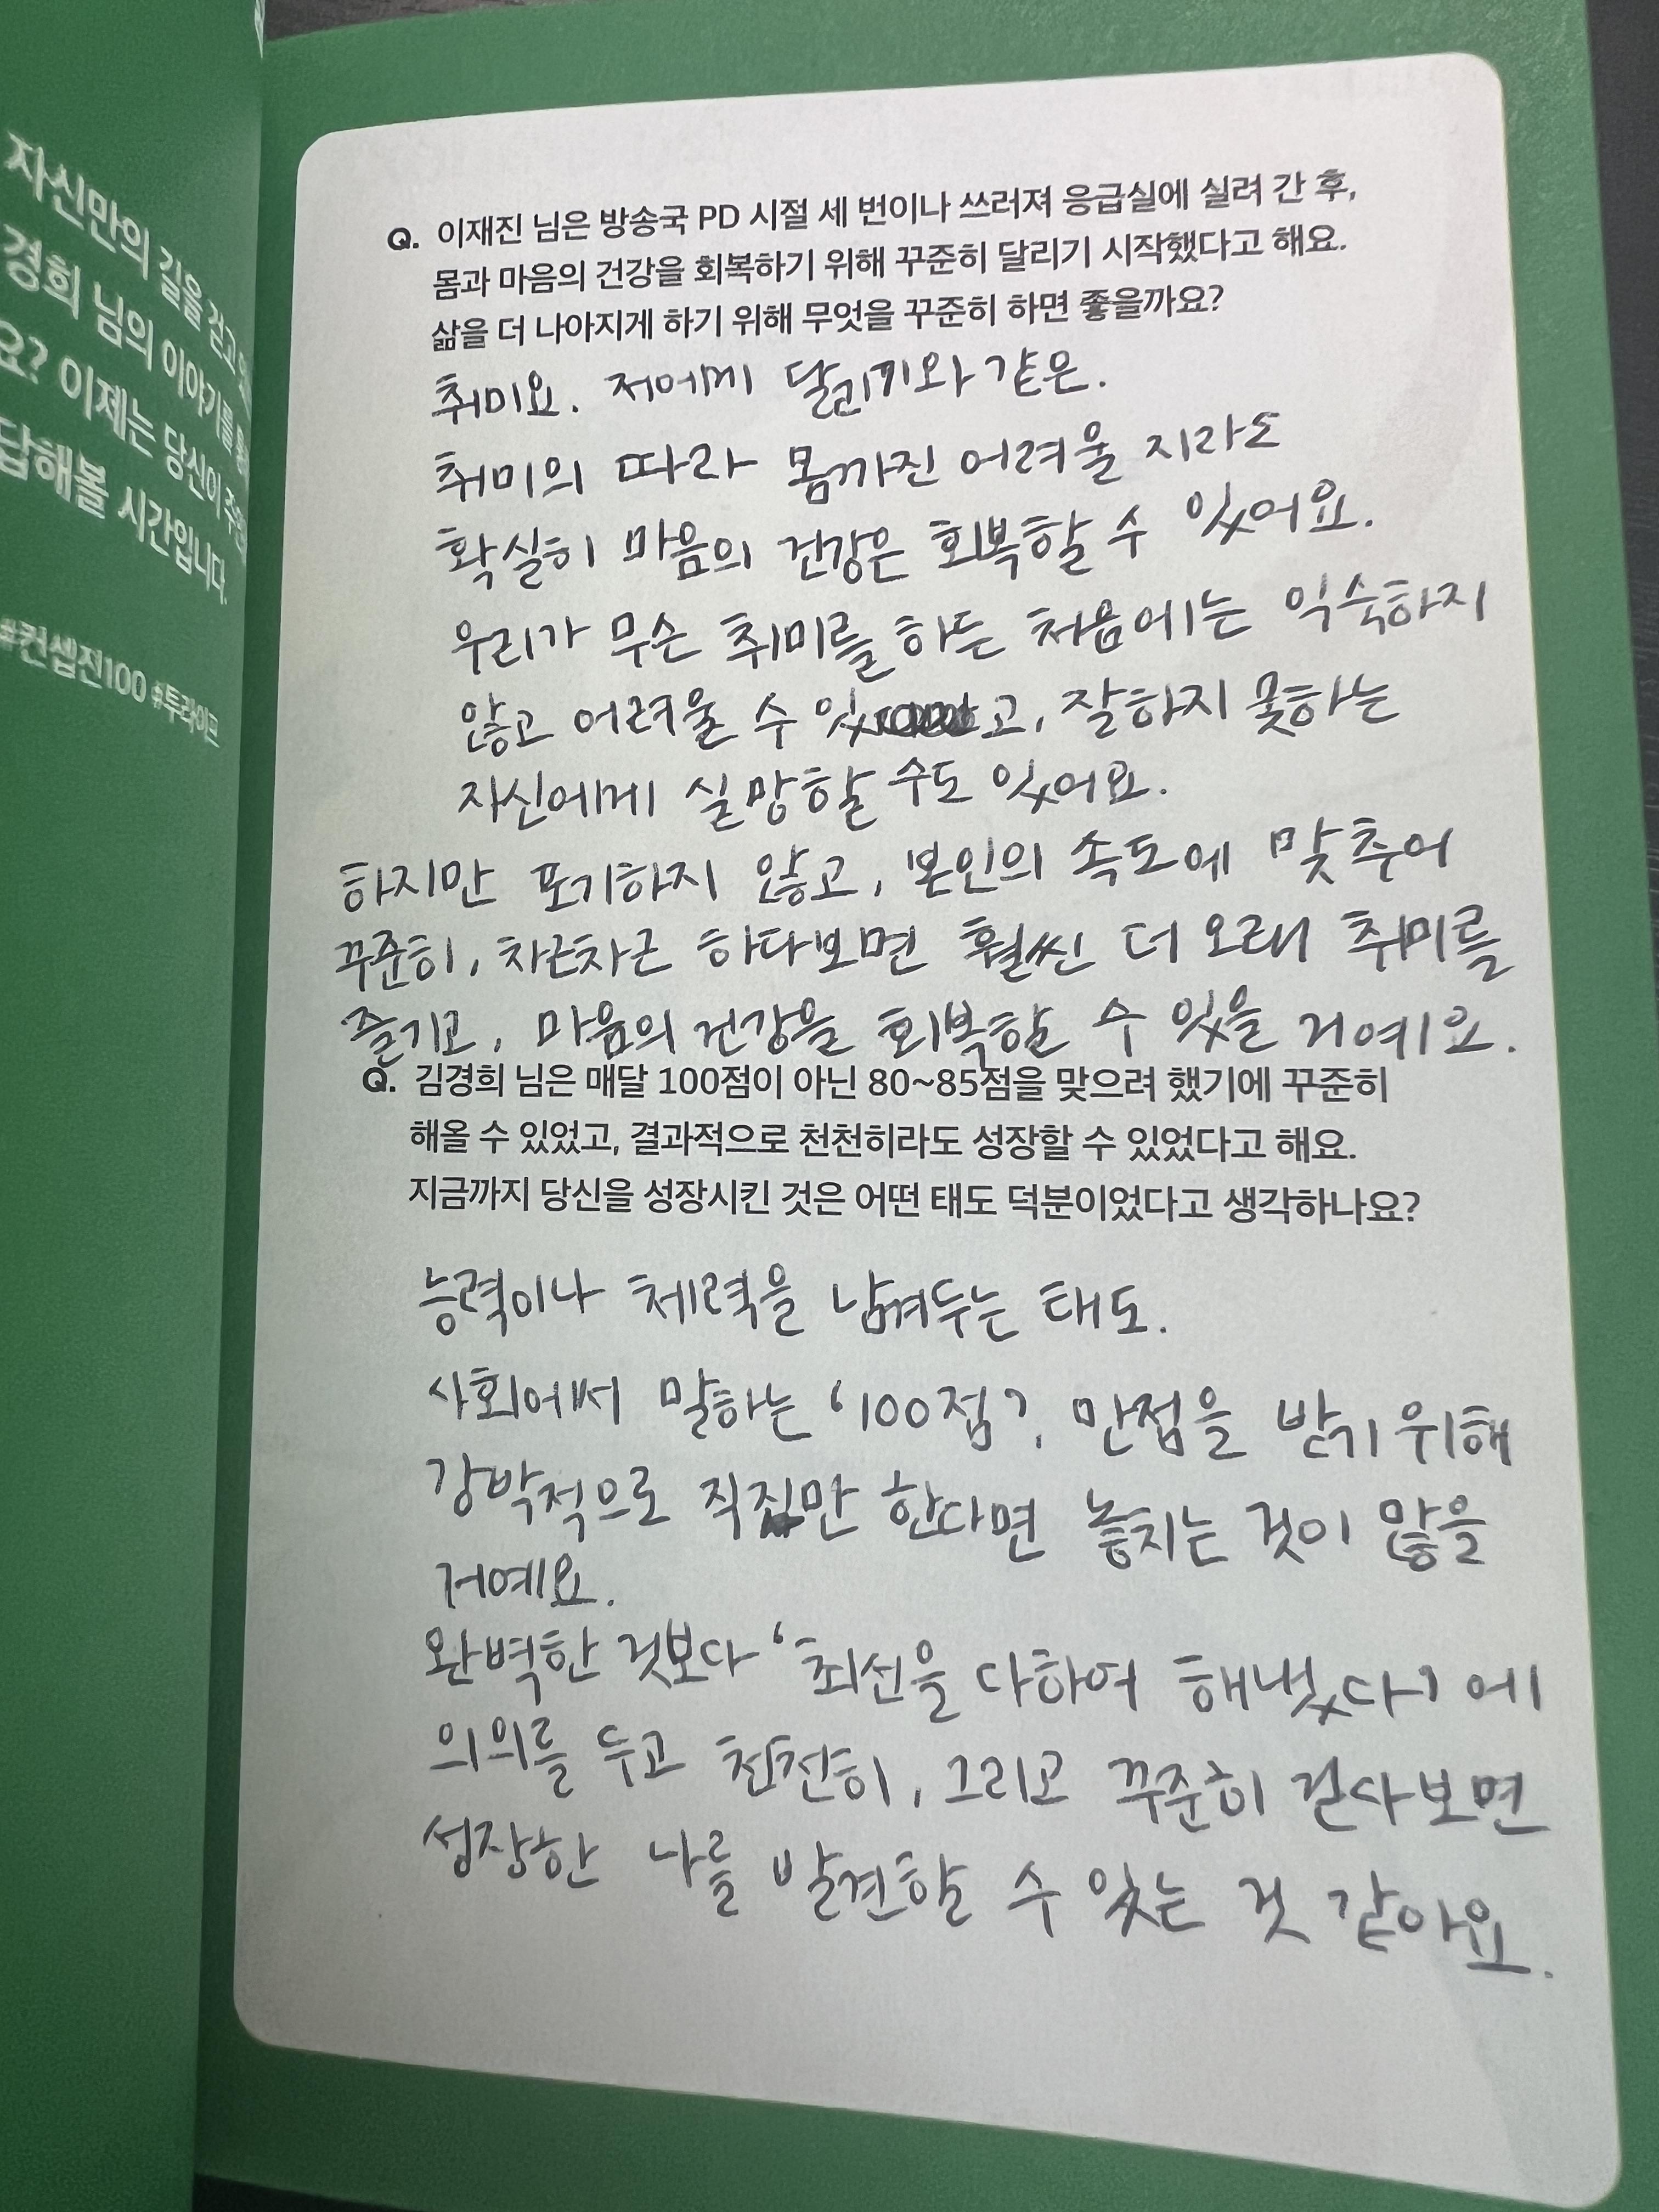 자신만의 길을 걷고
경희 님의 이야기를
요? 이제는 당신이
답해볼 시간입니다.
#컨셉진100 #투라이프
Q. 이재진 님은 방송국 PD 시절 세 번이나 쓰러져 응급실에 실려 간 후,
몸과 마음의 건강을 회복하기 위해 꾸준히 달리기 시작했다고 해요.
삶을 더 나아지게 하기 위해 무엇을 꾸준히 하면 좋을까요?
취미요. 저에게 달리기와 같은.
취미의 따라 몸까진 어려울 지라도
확실히 마음의 건강은 회복할 수 있어요.
우리가 무슨 취미를 하든 처음에는 익숙하지
않고 어려울 수 있고, 잘하지 못하는
자신에게 실망할 수도 있어요.
하지만 포기하지 않고, 본인의 속도에 맞추어
꾸준히, 차근차근 하다보면 훨씬 더 오래 취미를
즐기고, 마음의 건강을 회복할 수 있을 거예요.
Q. 김경희 님은 매달 100점이 아닌 80~85점을 맞으려 했기에 꾸준히
해올 수 있었고, 결과적으로 천천히라도 성장할 수 있었다고 해요.
지금까지 당신을 성장시킨 것은 어떤 태도 덕분이었다고 생각하나요?
능력이나 체력을 남겨두는 태도.
사회에서 말하는 '100점', 만점을 받기 위해
강박적으로 직진만 한다면 놓치는 것이 많을
거예요.
완벽한 것보다 '최선을 다하여 해냈다'에
의의를 두고 천천히, 그리고 꾸준히 걷다보면
성장한 나를 발견할 수 있는 것 같아요.